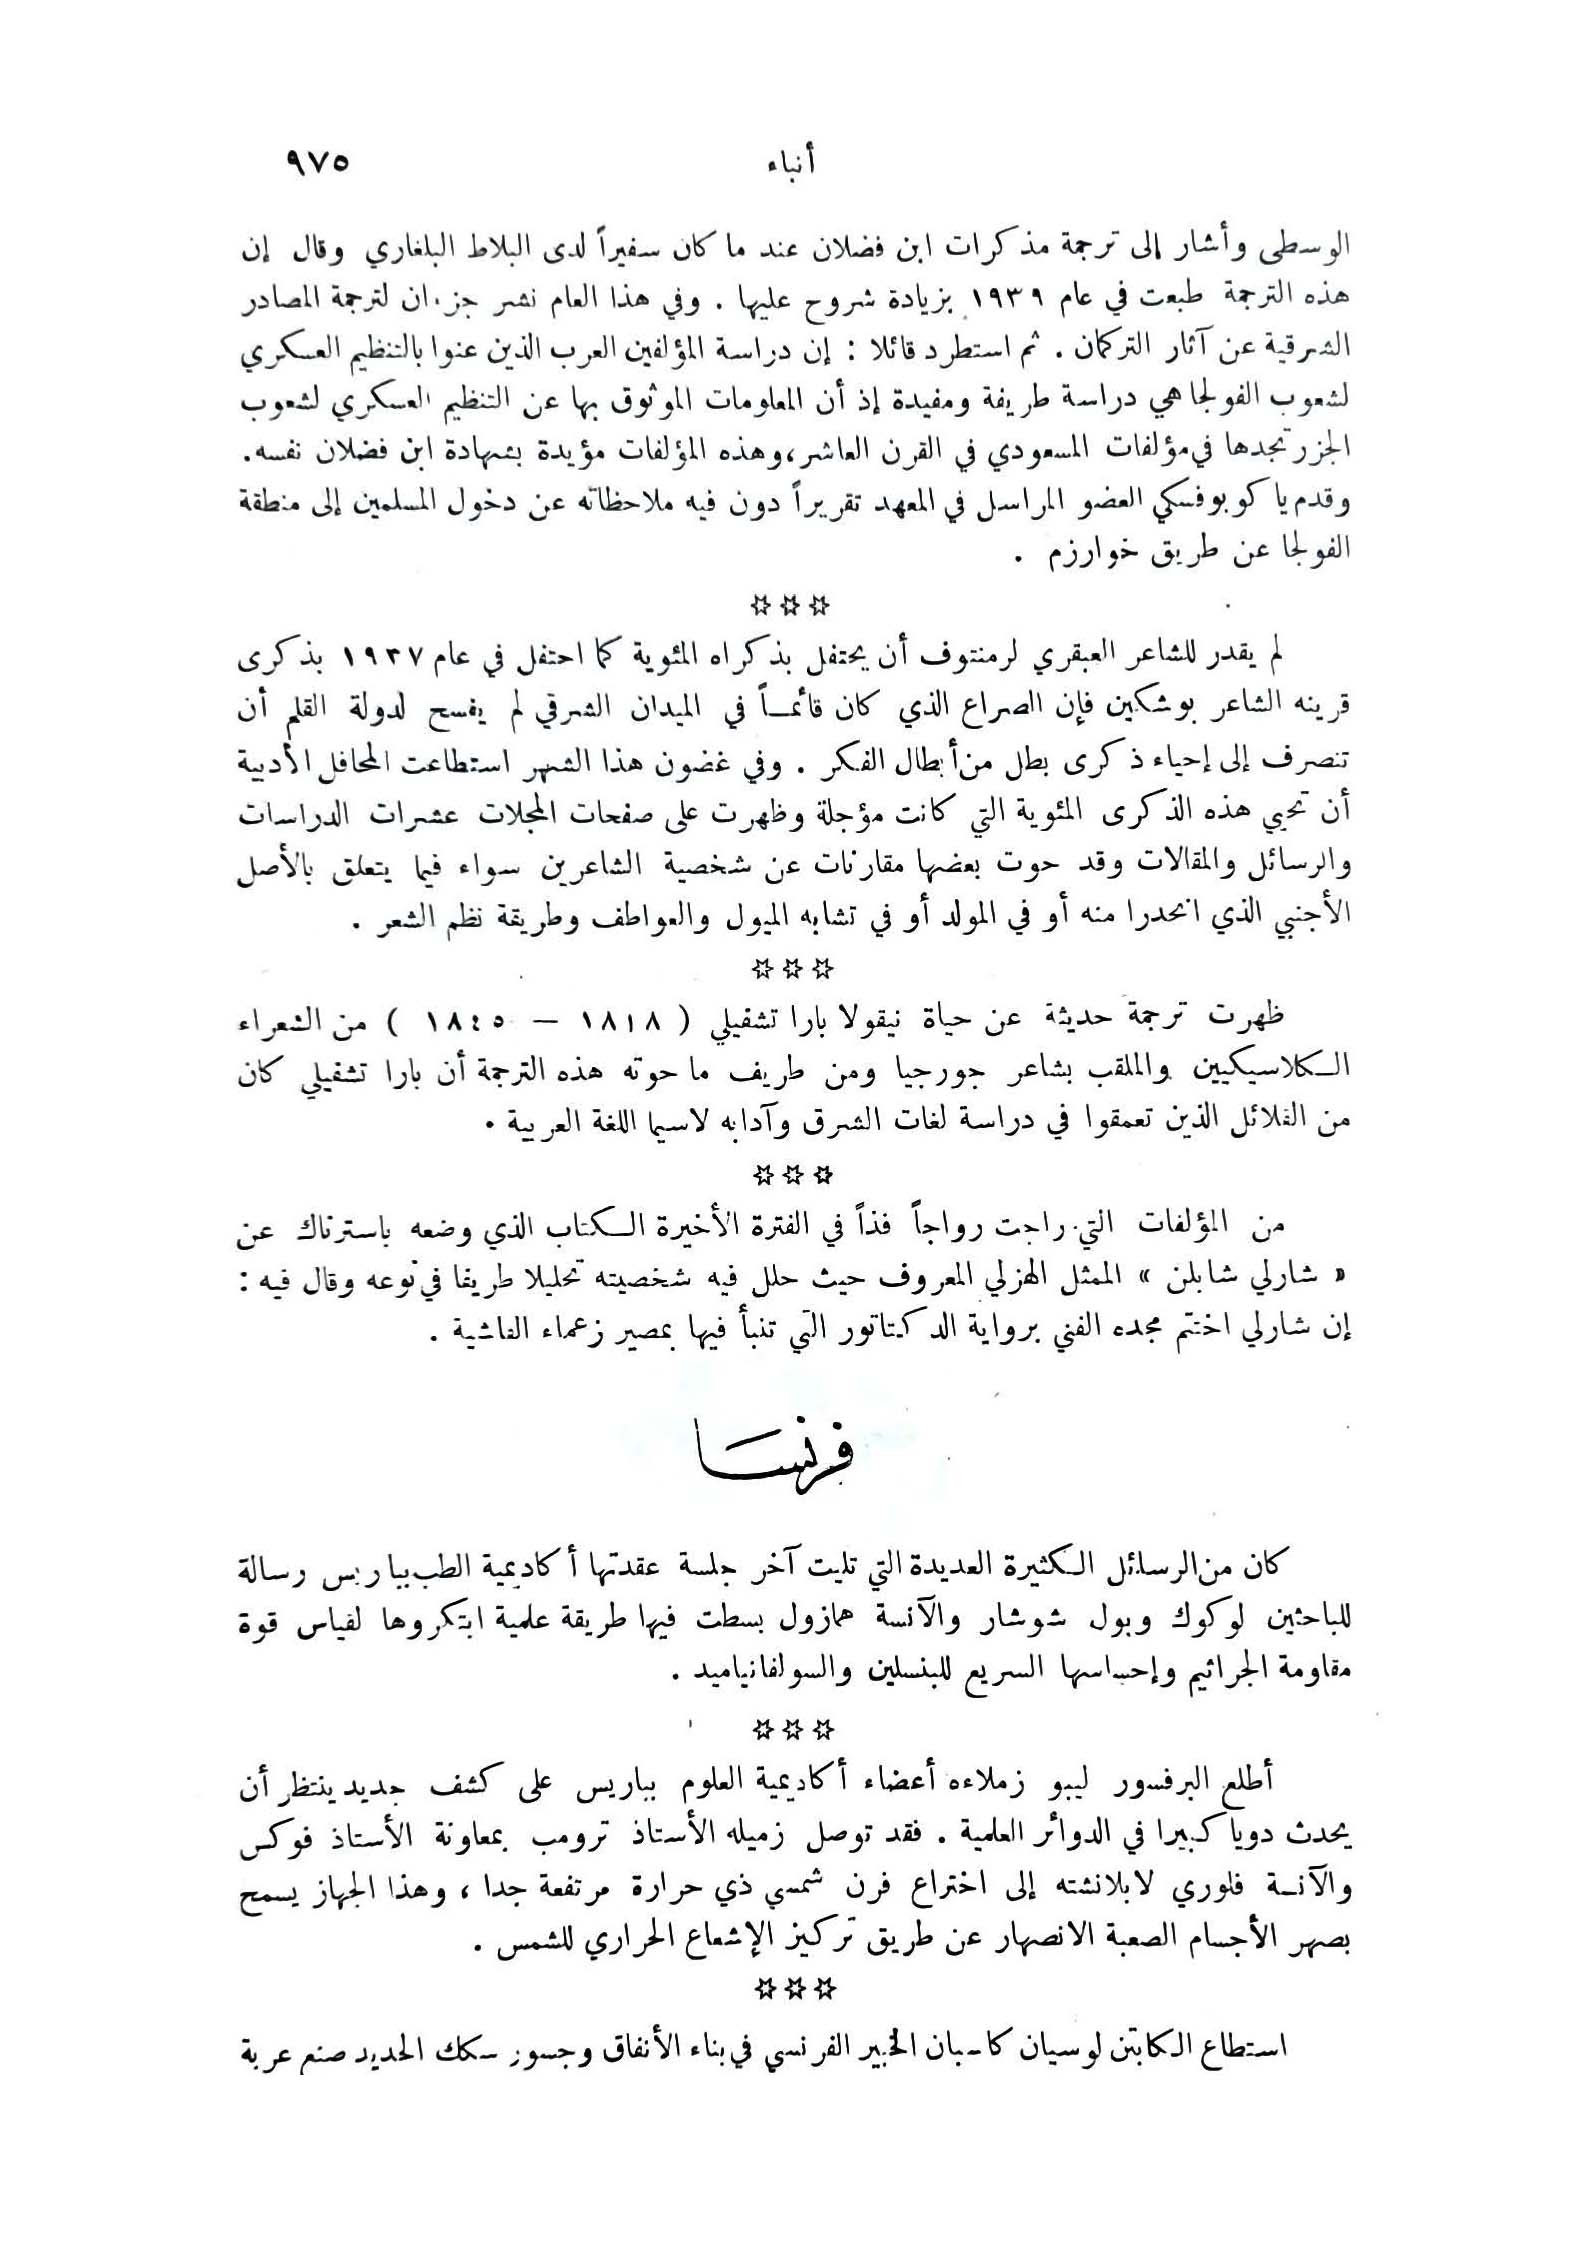 أنباء ٩٧٥
الوسطى وأشار إلى ترجمة مذكرات ابن فضلان عند ما كان سفيراً لدى البلاط البلغاري وقال إن
هذه الترجمة طبعت في عام ١٩٣٩ بزيادة شروح عليها . وفي هذا العام نشر جزءان لترجمة المصادر
الشرقية عن آثار التركمان . ثم استطرد قائلا : إن دراسة المؤلفين العرب الذين عنوا بالتنظيم العسكري
لشعوب الفولجا هي دراسة طريفة ومفيدة إذ أن المعلومات الموثوق بها عن التنظيم العسكري لشعوب
الجزر تجدها في مؤلفات المسعودي في القرن العاشر، وهذه المؤلفات مؤيدة بشهادة ابن فضلان نفسه.
وقدم ياكوبوفسكي العضو المراسل في المعهد تقريراً دون فيه ملاحظاته عن دخول المسلمين إلى منطقة
الفولجا عن طريق خوارزم .
✡✡✡
لم يقدر للشاعر العبقري لرمنتوف أن يحتفل بذكراه المئوية كما احتفل في عام ١٩٣٧ بذكرى
قرينه الشاعر بوشكين فإن الصراع الذي كان قائمـاً في الميدان الشرقي لم يفسح لدولة القلم أن
تنصرف إلى إحياء ذكرى بطل من أبطال الفكر . وفي غضون هذا الشهر استطاعت المحافل الأدبية
أن تحيي هذه الذكرى المئوية التي كانت مؤجلة وظهرت على صفحات المجلات عشرات الدراسات
والرسائل والمقالات وقد حوت بعضها مقارنات عن شخصية الشاعرين سواء فيما يتعلق بالأصل
الأجنبي الذي انحدرا منه أو في المولد أو في تشابه الميول والعواطف وطريقة نظم الشعر .
✡✡✡
ظهرت ترجمة حديثة عن حياة نيقولا بارا تشفيلي ( ١٨١٨ — ١٨٤٥ ) من الشعراء
الـكلاسيكيين والملقب بشاعر جورجيا ومن طريف ما حوته هذه الترجمة أن بارا تشفيلي كان
من القلائل الذين تعمقوا في دراسة لغات الشرق وآدابه لاسيما اللغة العربية .
✡✡✡
من المؤلفات التي راجت رواجاً فذاً في الفترة الأخيرة الـكتاب الذي وضعه باسترناك عن
« شارلي شابلن » الممثل الهزلي المعروف حيث حلل فيه شخصيته تحليلا طريفا في نوعه وقال فيه :
إن شارلي اختتم مجده الفني برواية الدكتاتور التي تنبأ فيها بمصير زعماء الفاشية .
فرنسا
كان من الرسائل الـكثيرة العديدة التي تليت آخر جلسة عقدتها أكاديمية الطب بباريس رسالة
للباحثين لوكوك وبول شوشار والآنسة همازول بسطت فيها طريقة علمية ابتكروها لقياس قوة
مقاومة الجراثيم وإحساسها السريع للبنسلين والسولفانياميد .
✡✡✡
أطلع البرفسور ليبو زملاءه أعضاء أكاديمية العلوم بباريس على كشف جديد ينتظر أن
يحدث دويا كبيرا في الدوائر العلمية . فقد توصل زميله الأستاذ ترومب بمعاونة الأستاذ فوكس
والآنسة فلوري لابلانشته إلى اختراع فرن شمسي ذي حرارة مرتفعة جدا ، وهذا الجهاز يسمح
بصهر الأجسام الصعبة الانصهار عن طريق تركيز الإشعاع الحراري للشمس .
✡✡✡
استطاع الـكابتن لوسيان كاسبان الخبير الفرنسي في بناء الأنفاق وجسور سكك الحديد صنع عربة